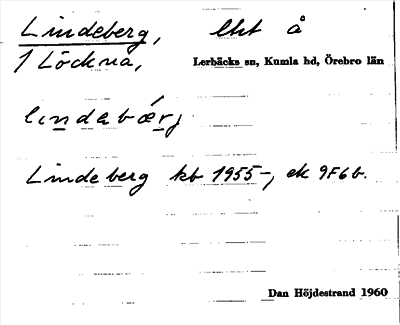 Lindeberg, lht å
1 Löckna, Lerbäcks sn, Kumla hd, Örebro län
lindabærj
Lindeberg kb 1955-, ek 9F6b.
Dan Höjdestrand 1960